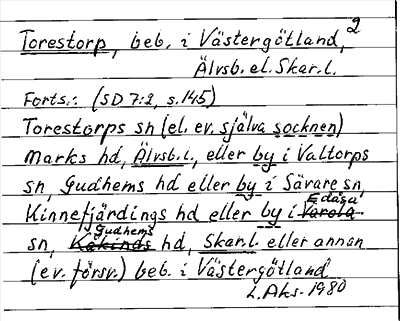 Torestorp, beb. i Västergötland, 2
Älvsb. el. Skar. l.
Forts.: (SD 7:2, s. 145)
Torestorps sn (el. ev. själva socknen)
Marks hd, Älvsb. l., eller by i Valtorps
sn, Gudhems hd eller by i Sävare sn,
Kinnefjärdings hd eller by i Varola Edåsa
sn, Kåkinds Gudhems hd, Skar. l. eller annan
(ev. försv.) beb. i Västergötland
L. Aks. 1980